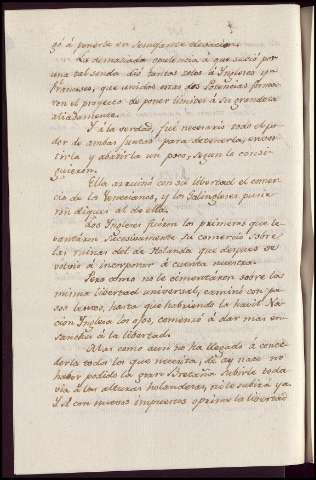 gó á ponerse en semejante elevacion.
La demasiada opulencia á que subió por
una tal senda dió tantos zelos á Ingleses y
Franceses, que unidas estas dos Potencias forma-
ron el proyecto de poner limites á su grandeza
aliadamente.
Y á la verdad, fué necesario todo el po-
der de ambas juntas para detenerla,
y abatirla un poco, segun lo consi-
guieron.
Ella arruinó con su libertad el comer-
cio de los Venecianos, y los Galingleses pusie-
ron diques al de ella.
Los Ingleses fueron los primeros que le-
vantaron succesivamente su comercio sobre
las ruinas del de Holanda que despues se
volvió á incorporar á cuenta nuestra.
Pero como no le cimentaron sobre la
misma libertad universal, caminó con pa-
sos lentos, hasta que habriendo la havil Na-
cion Inglesa los ojos, comenzó á dar mas en-
sanches á la libertad.
Mas como aun no ha llegado á conce-
derla toda la que necesita, de ay nace no
haber podido la gran Bretaña subirle toda-
via á las alturas holandesas, ni le subirá ya.
Y si con nuevos impuestos oprime la libertad